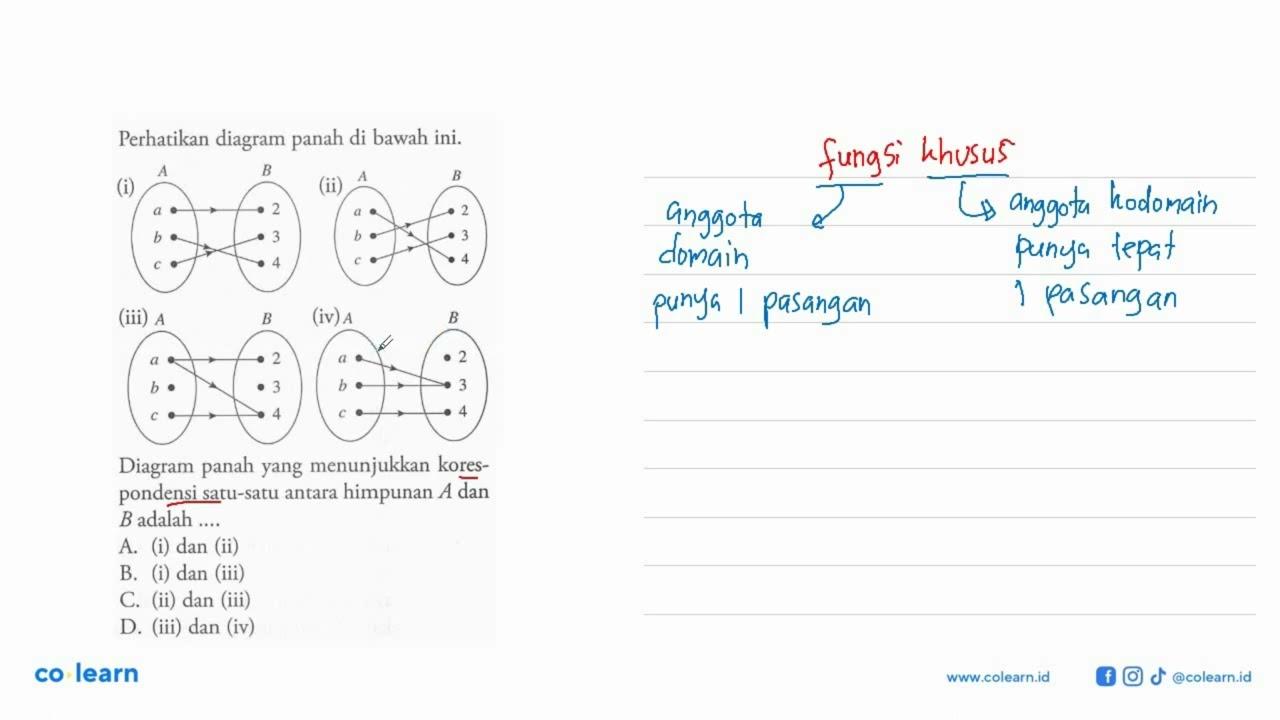 Perhatikan diagram panah di bawah ini.
(i) A B
a 2
b 3
c 4
(ii) A B
a 2
b 3
c 4
(iii) A B
a 2
b 3
c 4
(iv) A B
a 2
b 3
c 4
Diagram panah yang menunjukkan kores-
pondensi satu-satu antara himpunan A dan
B adalah ....
A. (i) dan (ii)
B. (i) dan (iii)
C. (ii) dan (iii)
D. (iii) dan (iv)
fungsi khusus
anggota
domain
punya 1 pasangan
anggota kodomain
punya tepat
1 pasangan
co learn
www.colearn.id
@colearn.id